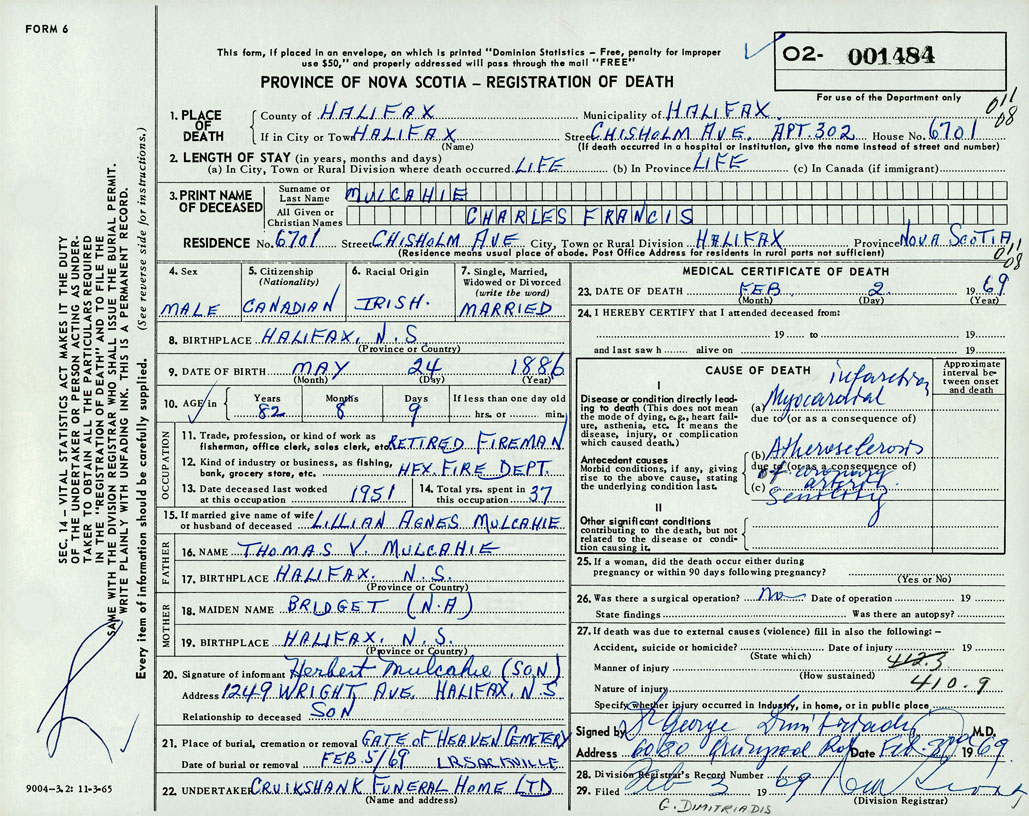 FORM 6
This form, if placed in an envelope, on which is printed "Dominion Statistics – Free, penalty for improper
use $50," and properly addressed will pass through the mail "FREE"
O2- 001484
PROVINCE OF NOVA SCOTIA – REGISTRATION OF DEATH
For use of the Department only
011
08
1. PLACE OF DEATH
County of HALIFAX Municipality of HALIFAX
If in City or Town HALIFAX Street CHISHOLM AVE. APT. 302 House No. 6701
(Name) (If death occurred in a hospital or institution, give the name instead of street and number)
2. LENGTH OF STAY (in years, months and days)
(a) In City, Town or Rural Division where death occurred LIFE (b) In Province LIFE (c) In Canada (if immigrant)
3. PRINT NAME OF DECEASED
Surname or Last Name MULCAHIE
All Given or Christian Names CHARLES FRANCIS
RESIDENCE No. 6701 Street CHISHOLM AVE City, Town or Rural Division HALIFAX Province NOVA SCOTIA
(Residence means usual place of abode. Post Office Address for residents in rural parts not sufficient)
011
08
4. Sex MALE
5. Citizenship (Nationality) CANADIAN
6. Racial Origin IRISH.
7. Single, Married, Widowed or Divorced (write the word) MARRIED
8. BIRTHPLACE HALIFAX, N.S.
(Province or Country)
9. DATE OF BIRTH MAY 24 1886
(Month) (Day) (Year)
10. AGE in Years 82 Months 8 Days 9 If less than one day old
hrs. or min.
OCCUPATION
11. Trade, profession, or kind of work as
fisherman, office clerk, sales clerk, etc. RETIRED FIREMAN
12. Kind of industry or business, as fishing,
bank, grocery store, etc. HFX. FIRE DEPT.
13. Date deceased last worked at this occupation 1951
14. Total yrs. spent in this occupation 37
15. If married give name of wife
or husband of deceased LILLIAN AGNES MULCAHIE
FATHER
16. NAME THOMAS V. MULCAHIE
17. BIRTHPLACE HALIFAX, N.S.
(Province or Country)
MOTHER
18. MAIDEN NAME BRIDGET (N.A)
19. BIRTHPLACE HALIFAX, N.S.
(Province or Country)
20. Signature of informant Herbert Mulcahie (SON)
Address 1249 WRIGHT AVE. HALIFAX, N.S
Relationship to deceased SON
21. Place of burial, cremation or removal GATE OF HEAVEN CEMETERY
Date of burial or removal FEB. 5/69 LR. SACKVILLE
22. UNDERTAKER CRUIKSHANK FUNERAL HOME LTD
(Name and address)
MEDICAL CERTIFICATE OF DEATH
23. DATE OF DEATH FEB. 2 1969
(Month) (Day) (Year)
24. I HEREBY CERTIFY that I attended deceased from:
19 to 19
and last saw h alive on 19
CAUSE OF DEATH
Approximate interval between onset and death
I
Disease or condition directly leading to death (This does not mean the mode of dying, e.g., heart failure, asthenia, etc. It means the disease, injury, or complication which caused death.)
infarction
(a) Myocardial
due to (or as a consequence of)
Antecedent causes
Morbid conditions, if any, giving rise to the above cause, stating the underlying condition last.
(b) Atherosclerosis
due to (or as a consequence of)
of coronary
arteries
(c) Senility
II
Other significant conditions
contributing to the death, but not related to the disease or condition causing it.
25. If a woman, did the death occur either during
pregnancy or within 90 days following pregnancy?
(Yes or No)
26. Was there a surgical operation? no Date of operation 19
State findings Was there an autopsy?
27. If death was due to external causes (violence) fill in also the following: –
Accident, suicide or homicide? Date of injury 19
(State which)
412.3
Manner of injury
(How sustained)
410.9
Nature of injury
Specify whether injury occurred in Industry, in home, or in public place
Signed by Dr George Dimitriadis M.D.
Address 6080 Date Feb. 1969
28. Division Registrar's Record Number
29. Filed Feb 3 1969
(Division Registrar)
G. DIMITRIADIS
SEC. 14 – VITAL STATISTICS ACT MAKES IT THE DUTY
OF THE UNDERTAKER OR PERSON ACTING AS UNDER-
TAKER TO OBTAIN ALL THE PARTICULARS REQUIRED
IN THE "REGISTRATION OF DEATH" AND TO FILE THE
SAME WITH THE DIVISION REGISTRAR WHO SHALL ISSUE THE BURIAL PERMIT.
WRITE PLAINLY WITH UNFADING INK. THIS IS A PERMANENT RECORD.
Every item of information should be carefully supplied. (See reverse side for instructions.)
9004-3.2: 11-3-65